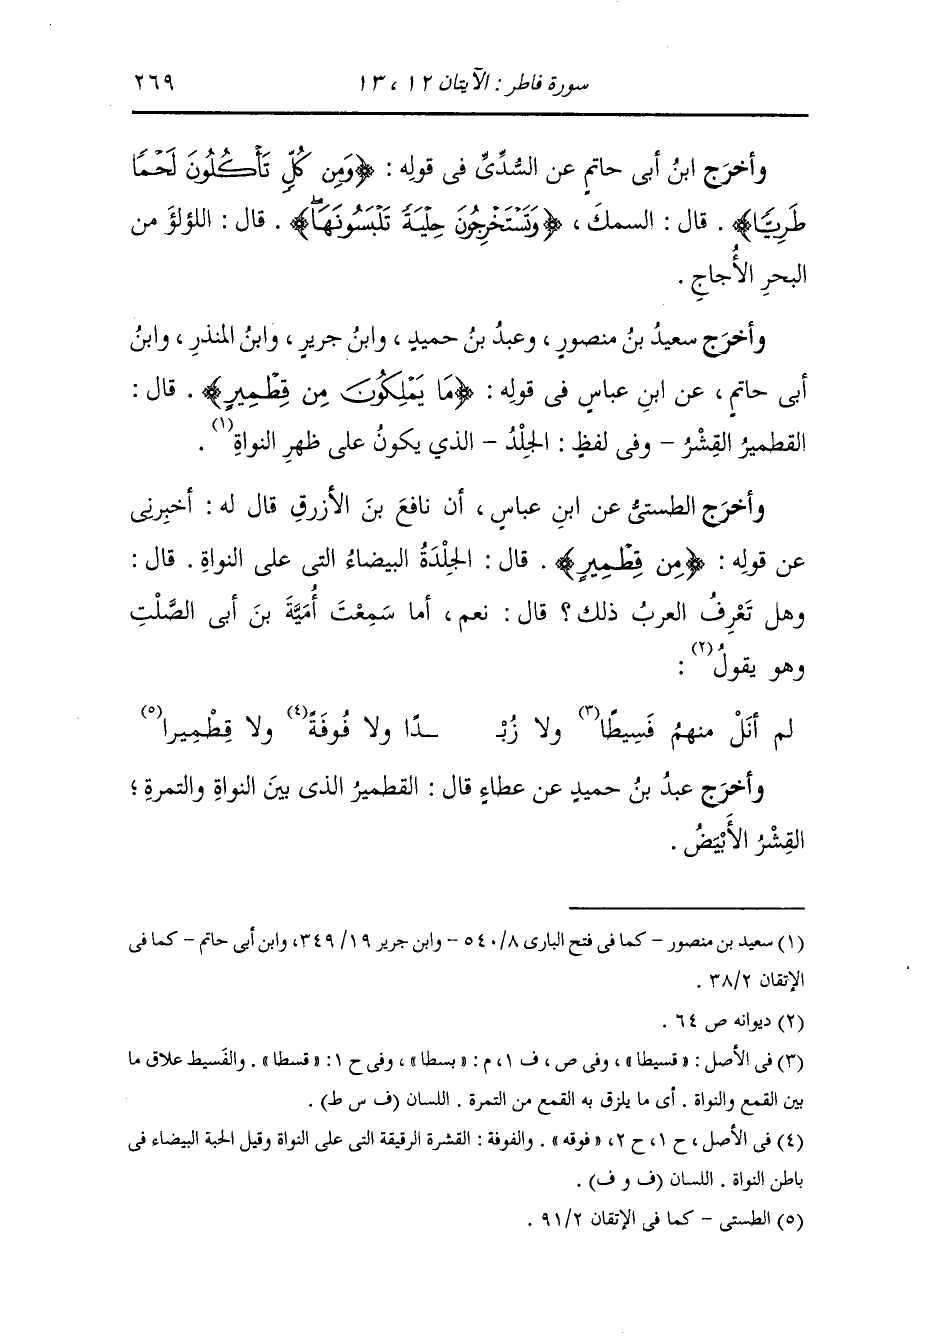 سورة فاطر : الآيتان ١٢ ، ١٣ ٢٦٩
وأخرَج ابنُ أبى حاتمٍ عن السُّدِّىِّ فى قولِه : ﴿وَمِن كُلٍّ تَأْكُلُونَ لَحْمًا
طَرِيًّا﴾ . قال : السمكَ ، ﴿وَتَسْتَخْرِجُونَ حِلْيَةً تَلْبَسُونَهَاۖ﴾ . قال : اللؤلؤَ من
البحرِ الأُجاجِ .
وأخرَج سعيدُ بنُ منصورٍ ، وعبدُ بنُ حميدٍ ، وابنُ جريرٍ ، وابنُ المنذرِ ، وابنُ
أبى حاتمٍ ، عن ابنِ عباسٍ فى قولِه : ﴿مَا يَمْلِكُونَ مِن قِطْمِيرٍ﴾ . قال :
القطميرُ القِشْرُ – وفى لفظٍ : الجِلْدُ – الذي يكونُ على ظهرِ النواةِ(١) .
وأخرَج الطستىُّ عن ابنِ عباسٍ ، أن نافعَ بنَ الأزرقِ قال له : أخبِرنِى
عن قولِه : ﴿مِن قِطْمِيرٍ﴾ . قال : الجِلْدَةُ البيضاءُ التى على النواةِ . قال :
وهل تَعْرِفُ العربُ ذلك ؟ قال : نعم ، أما سَمِعْتَ أُمَيَّةَ بنَ أبى الصَّلْتِ
وهو يقولُ(٢) :
لم أنَلْ منهمُ فَسِيطًا(٣) ولا زُبْـ ـدًا ولا فُوفَةً(٤) ولا قِطْمِيرا(٥)
وأخرَج عبدُ بنُ حميدٍ عن عطاءٍ قال : القطميرُ الذى بينَ النواةِ والتمرةِ ؛
القِشْرُ الأَبْيَضُ .
(١) سعيد بن منصور – كما فى فتح البارى ٥٤٠/٨ – وابن جرير ١٩/ ٣٤٩، وابن أبى حاتم – كما فى
الإتقان ٣٨/٢ .
(٢) ديوانه ص ٦٤ .
(٣) فى الأصل : « قسيطا » ، وفى ص ، ف ١، م : « بسطا » ، وفى ح ١: « قسطا » . والفَسيط علاق ما
بين القمع والنواة . أى ما يلزق به القمع من التمرة . اللسان (ف س ط) .
(٤) فى الأصل ، ح ١، ح ٢، « فوقه » . والفوفة : القشرة الرقيقة التى على النواة وقيل الحبة البيضاء فى
باطن النواة . اللسان (ف و ف) .
(٥) الطستى – كما فى الإتقان ٩١/٢ .